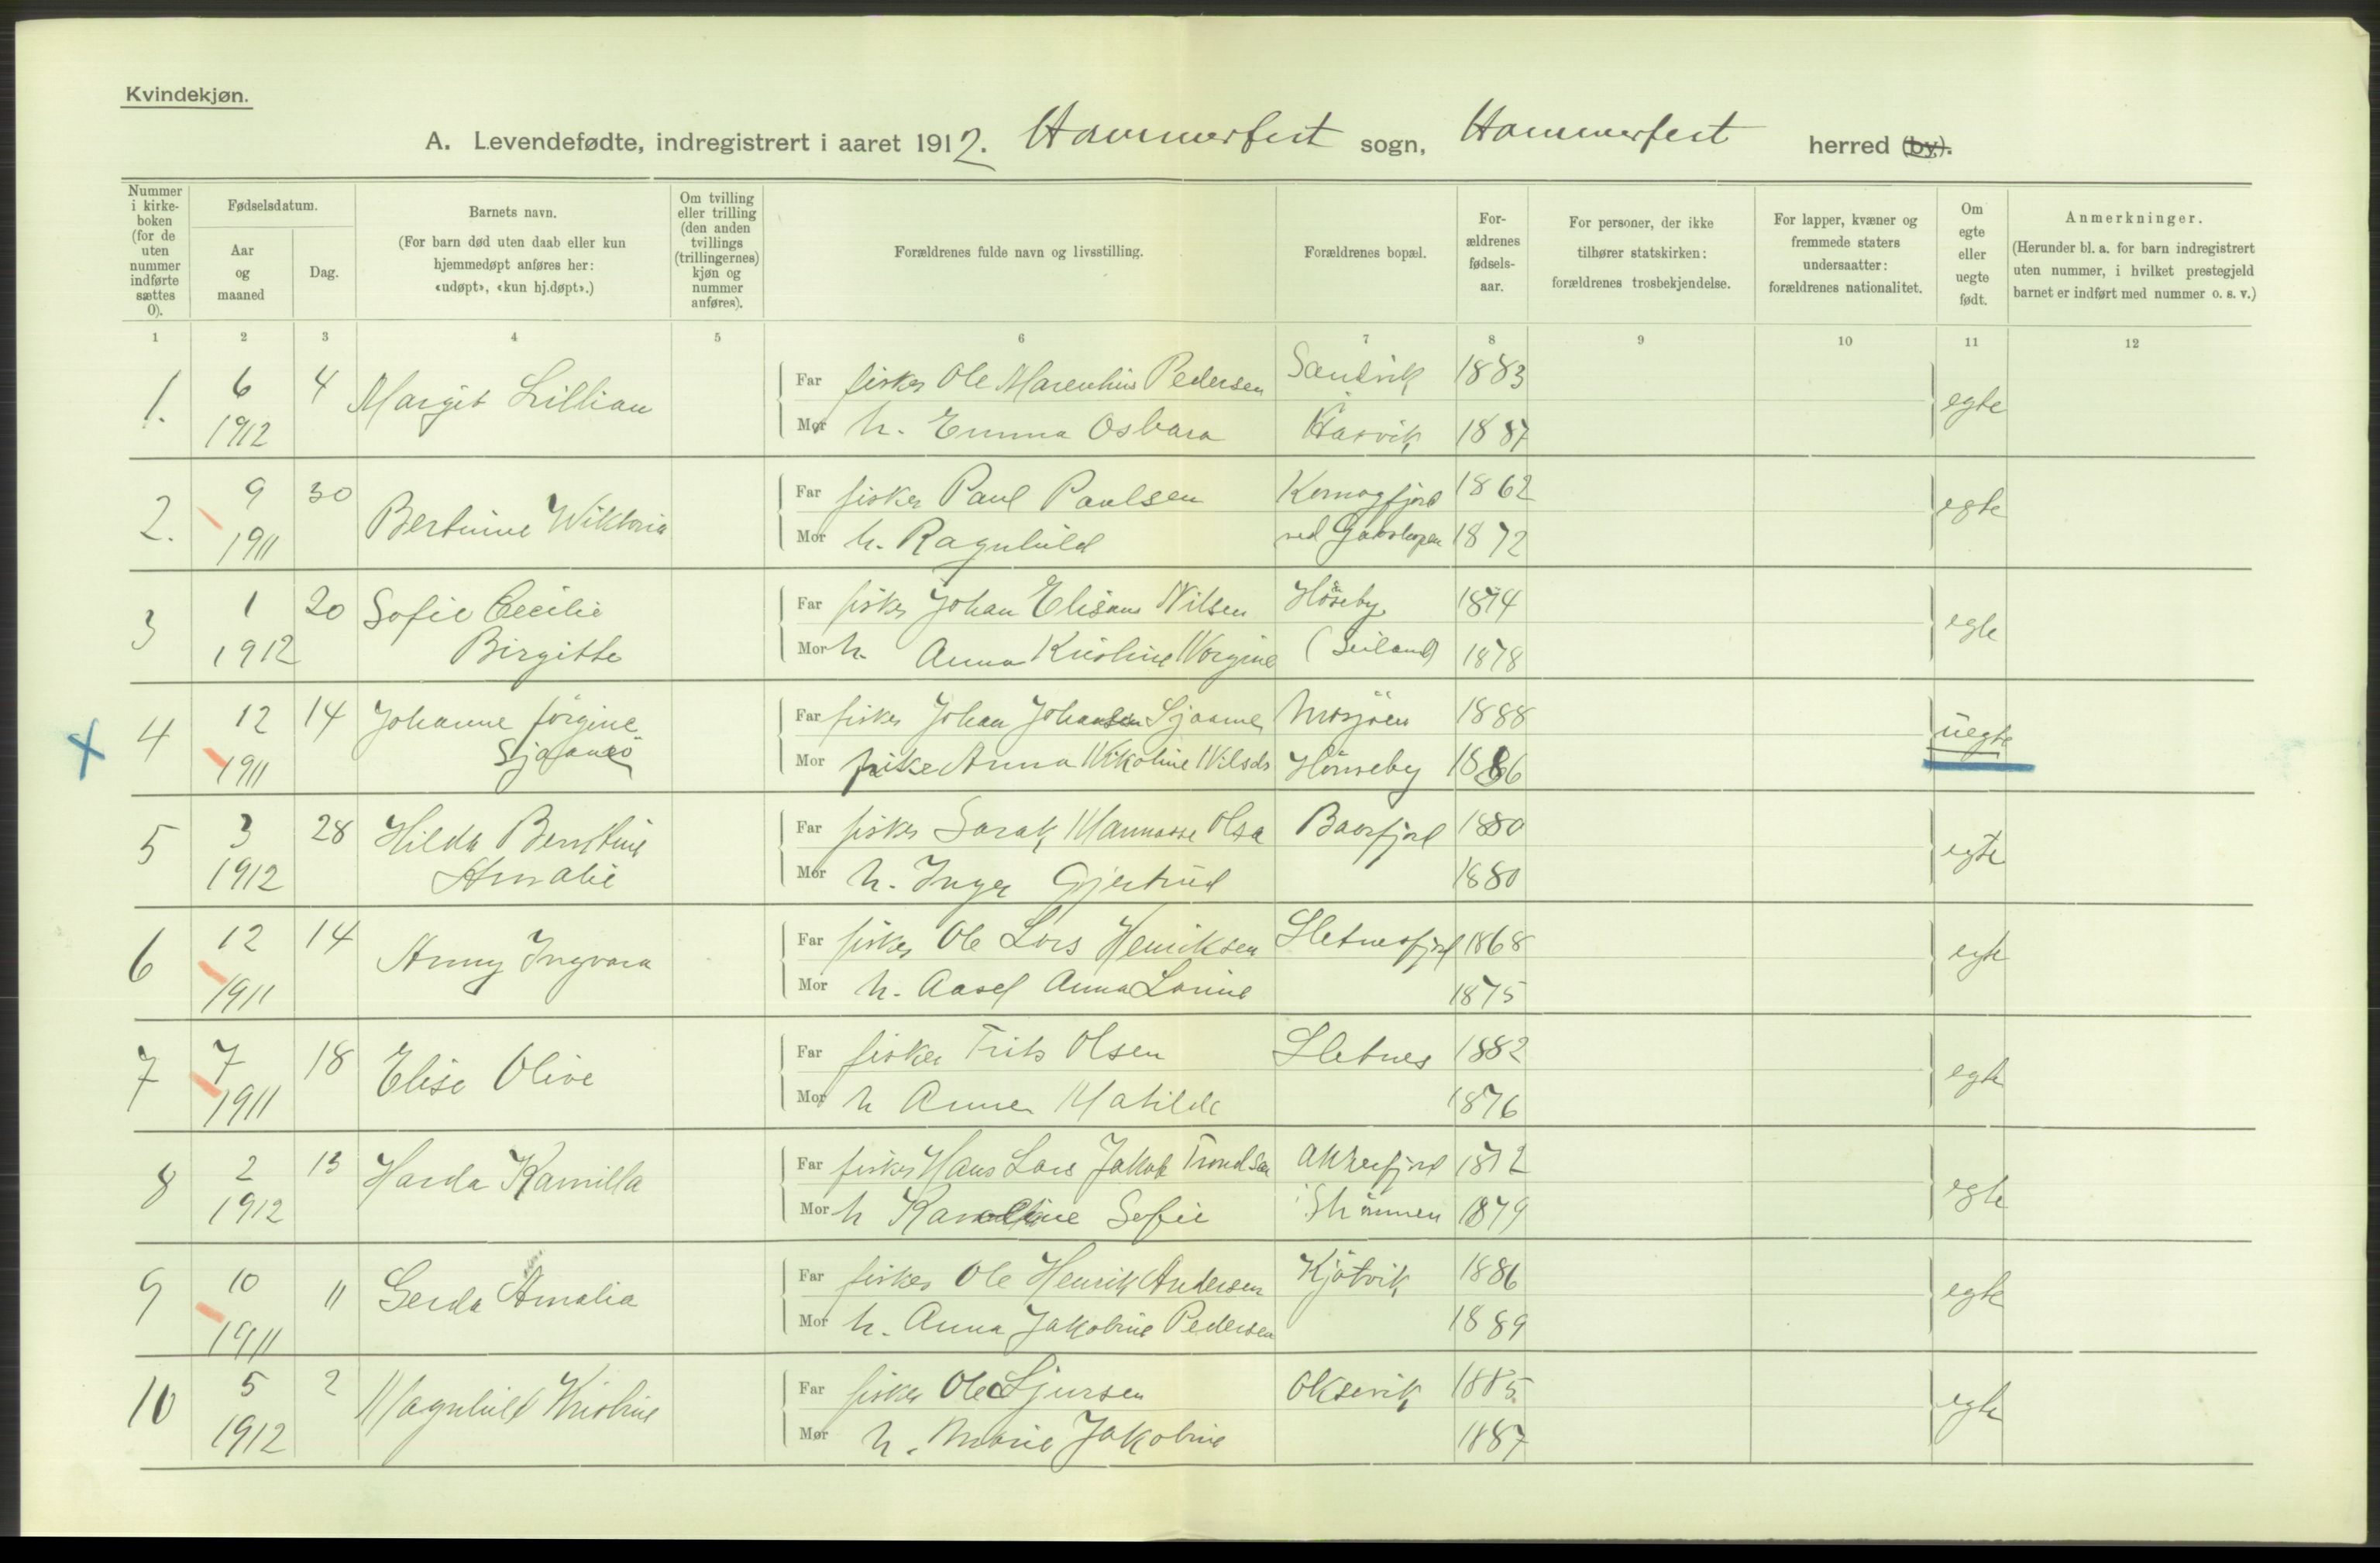 Kvindekjøn.
A. Levendefødte, indregistrert i aaret 1912. Hammerfest sogn, Hammerfest herred (by).
Nummer i kirkeboken (for de uten nummer indførte sættes 0).
Fødselsdatum.
Aar og maaned
Dag.
Barnets navn.
(For barn død uten daab eller kun hjemmedøpt anføres her: «udøpt», «kun hj.døpt».)
Om tvilling eller trilling (den anden tvillings (trillingernes) kjøn og nummer anføres).
Forældrenes fulde navn og livsstilling.
Forældrenes bopæl.
Forældrenes fødselsaar.
For personer, der ikke tilhører statskirken: forældrenes trosbekjendelse.
For lapper, kvæner og fremmede staters undersaatter: forældrenes nationalitet.
Om egte eller uegte født.
Anmerkninger.
(Herunder bl. a. for barn indregistrert uten nummer, i hvilket prestegjeld barnet er indført med nummer o. s. v.)
1 2 3 4 5 6 7 8 9 10 11 12
1. 6 1912 4 Margit Lillian
Far fisker Ole Marenius Pedersen Sandvik 1883
Mor h. Emma Osbara Hasvik 1887
egte
2. 9 1911 30 Bertine Wiktoria
Far fisker Paul Paulsen Komagfjord 1862
Mor h. Ragnhild ved 1872
egte
3 1 1912 20 Sofie Cecilie
Birgitte
Far fisker Johan Elisæus Nilsen Hönseby 1874
Mor h. Anna Kristine Norgine (Seiland) 1878
egte
4 12 1911 14 Johanne Jörgine
Far fisker Johan Johansen Mosjöen 1888
Mor pike Anna Nikoline Nilsdr Hönseby 1886
uegte
5 3 1912 28 Hilda Berntine
Amalie
Far fisker Sarak Mannasse Olsa Baasfjord 1880
Mor h. Inger Gjertrud 1880
egte
6 12 1911 14 Anny Ingvara
Far fisker Ole Lars Henriksen Sletnesfjord 1868
Mor h. Aasel Anna Lovine 1875
egte
7 7 1911 18 Elise Olive
Far fisker Frits Olsen Sletnes 1882
Mor h Anne Matilde 1876
egte
8 2 1912 13 Harda Kamilla
Far fisker Hans Lars Jakob Trondsen Akkerfjord 1872
Mor h Karoline Sofie i Strömmen 1879
egte
9 10 1911 11 Gerda Amalia
Far fisker Ole Henrik Andersen Kjötvik 1886
Mor h. Anna Jakobine Pedersen 1889
egte
10 5 1912 2 Magnhild Kristine
Far fisker Ole Sjursen Oksevik 1885
Mor h. Marie Jakobine 1887
egte